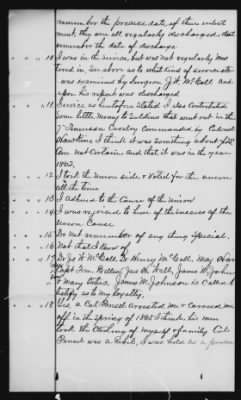 remember the precise date of their enlist
ment, they are all regularly discharged dont
remember the date of discharge
" " " 10 I was in the service, but was not regularly mus
tered in, See above as to what kind of service
was examined by Surgeon J. W. McCall and
upon his report was discharged
" " " 11 Service as heretofore stated I also contributed
some little money to Soldiers that went out in the
7th Tennessee Cavalry Commanded by Colonel
Hawkins I think it was something about
Am not Certain, and that it was in the year
1862,
" " " 12 I took the Union side, & Voted for the Union
all the time
" " " 13 I adhered to the Cause of the Union
" " " 14 I was rejoiced to hear of the success of the
Union Cause
" " " 15 Do not remember of any thing Special,
" " " 16 Not that I know of
" " " 17 Dr J. W. McCall, Dr Henry McCall, May
Capt Tom Jas H. Hall, James M Johnson
& Many others, James M. Johnson is Called to
testify as to my loyalty,
" " " 18 Did, a Col arrested me & carried me
off in the spring of 1865 I think, his men
took the Clothing of myself & family Col
was a Rebel, I was held as a prisoner